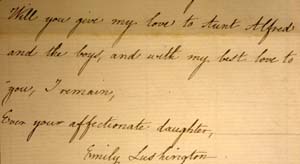 Will you give my love to Aunt Alfred
and the boys, and with my best love to
you, I remain,
Ever your affectionate daughter,
Emily Lushington